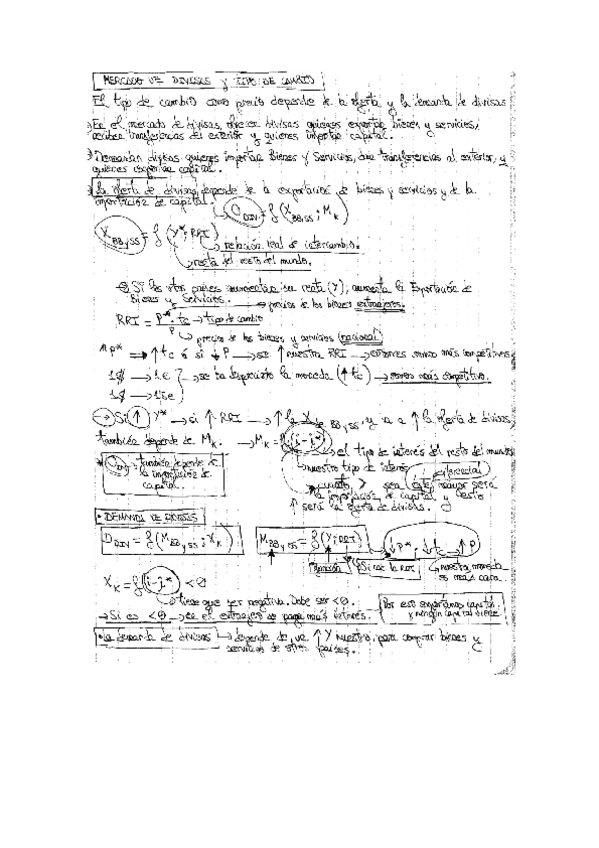 MERCADO DE DIVISAS y TIPO DE CAMBIO
El tipo de cambio como precio depende de la oferta y la demanda de divisas
En el mercado de divisas, ofrecen divisas quienes exportan bienes y servicios,
reciben transferencias del exterior y quienes importan capital.
Demandan divisas quienes importan Bienes y Servicios, dan transferencias al exterior, y
quienes exportan capital.
La oferta de divisas depende de la exportación de bienes y servicios y de la
importación de capital. → O DIV = f (X BB,SS ; M K)
X BB y SS = f (Y*; RRI)
→ relación real de intercambio.
→ renta del resto del mundo.
Si los otros países aumentan su renta (Y), aumenta la Exportación de
Bienes y Servicios. → precios de los bienes extranjeros.
RRI = P* · tc / P → tipo de cambio
→ precios de los bienes y servicios (nacional)
↑ P* → ↑ tc ó si ↓ P → se ↑ nuestra RRI → somos más competitivos
1$ → 1€ } → se ha depreciado la moneda (↑ tc) → somos más competitivo.
1$ → 1'5€
→ Si ↑ Y* → si ↑ RRI → ↑ la X BB,SS, y va a ↑ la oferta de divisas
también depende de M K. → M K = f (i - i*)
→ el tipo de interés del resto del mundo
→ nuestro tipo de interés (diferencial)
* O DIV → también depende de
la importación de
capital.
→ cuanto > sea (este) mayor será
la importación de capital y esto
↑ será la oferta de divisas.
• DEMANDA DE DIVISAS
D DIV = f (M BB y SS ; X K)
M BB y SS = f (Y; RRI) → ↓ P*, ↓ tc → ↑ P
Si cae la RRI → nuestra moneda
es más cara.
X K = f (i - i*) < 0
→ tiene que ser negativa. Debe ser < 0.
→ Si es < 0 → en el extranjero se paga más interés.
Por eso exportamos capital,
y ningún capital viene.
• la demanda de divisas → depende de, ↑ Y nuestro, para comprar bienes y
servicios de otros países.